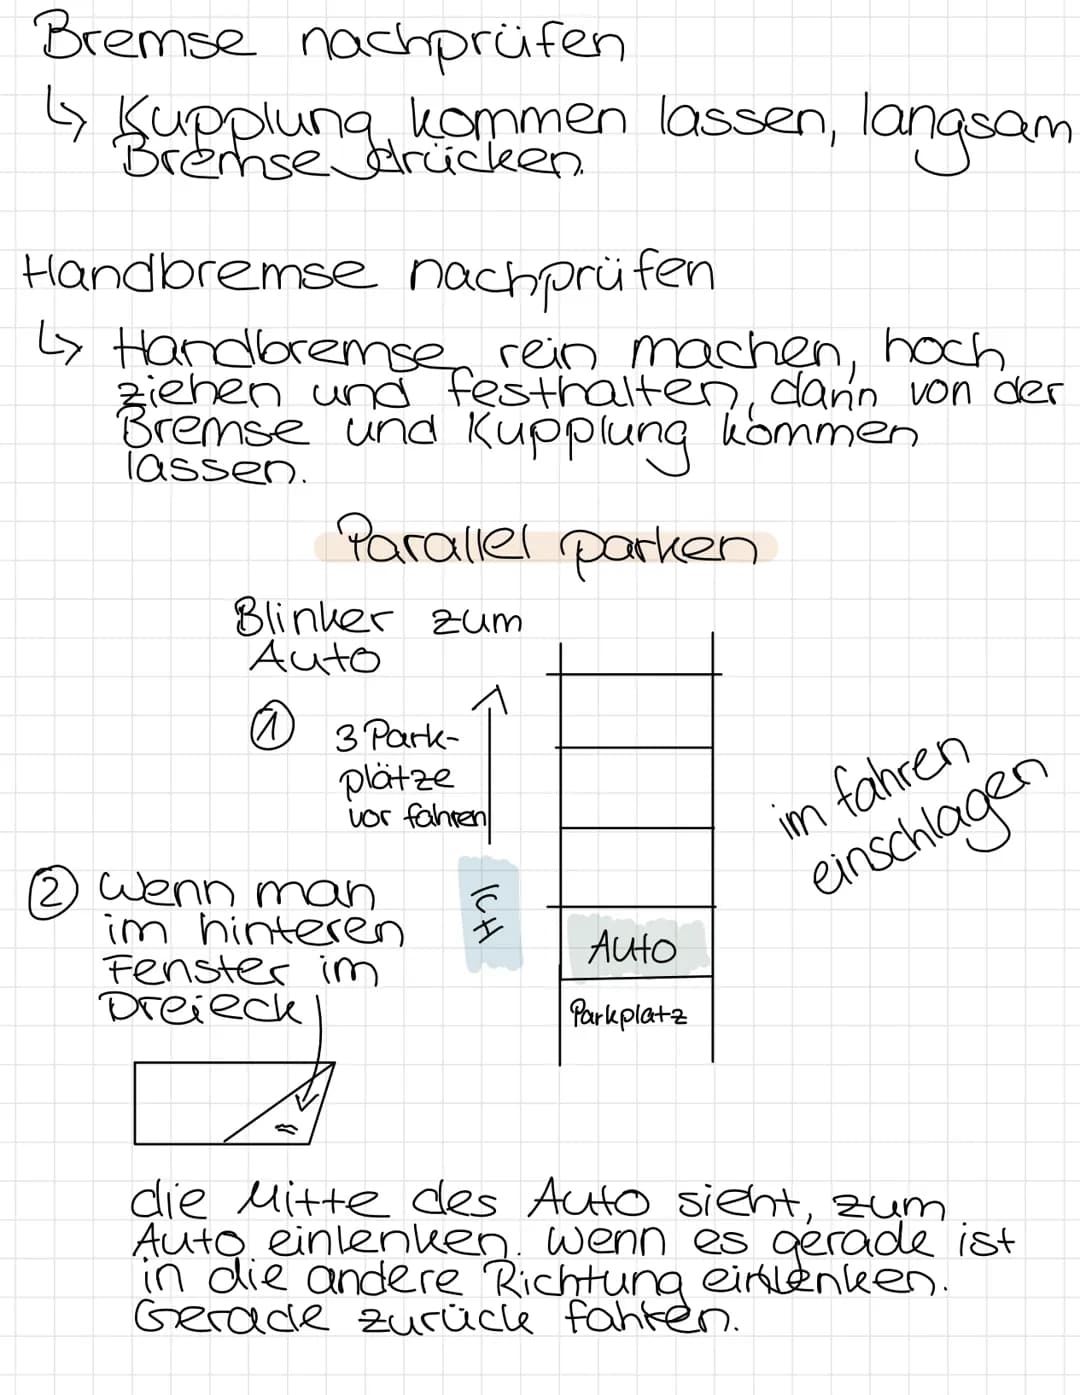 Bremse nachprüfen
↳ Kupplung kommen lassen, langsam
Bremse drücken.
Handbremse nachprüfen
↳ Handbremse rein machen, hoch
ziehen und festhalten, dann von der
Bremse und Kupplung kommen
lassen.
Parallel parken
Blinker zum
Auto
① 3 Park-
plätze
vor fahren
im fahren
einschlagen
② Wenn man
im hinteren
Fenster im
Dreieck
ICH
Auto
Parkplatz
die Mitte des Auto sieht, zum
Auto einlenken. Wenn es gerade ist
in die andere Richtung einlenken.
Gerade zurück fahren.